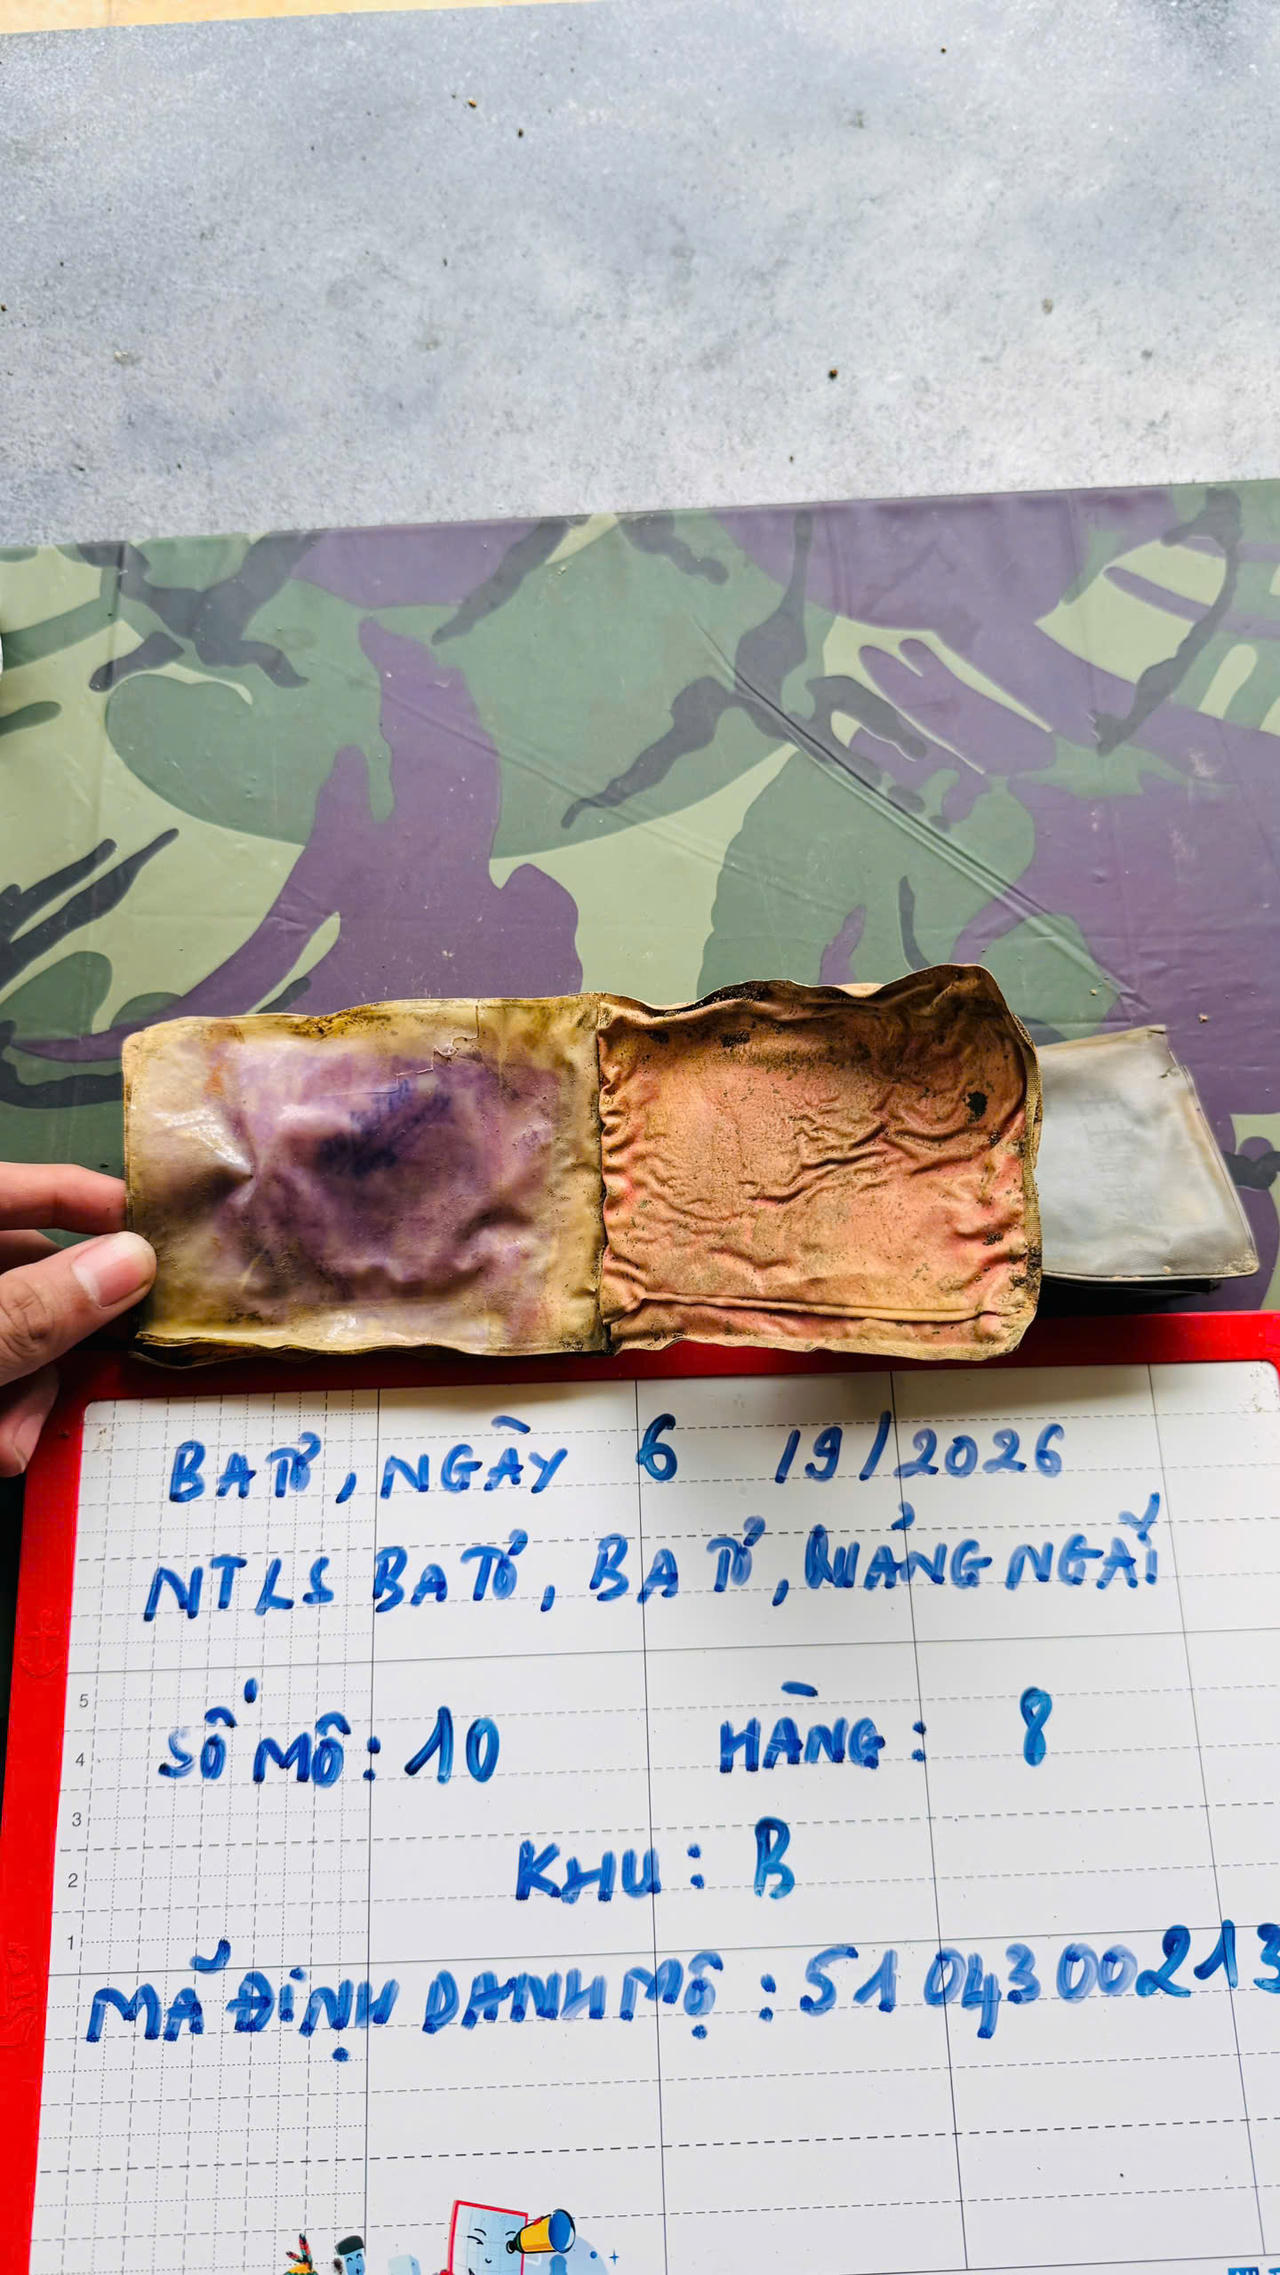 BA TƠ, NGÀY 6 19/2026
NTLS BA TƠ, BA TƠ, QUẢNG NGÃI
SỐ MỘ: 10 HÀNG: 8
KHU: B
MÃ ĐỊNH DANH MỘ: 5104300213
5
4
3
2
1